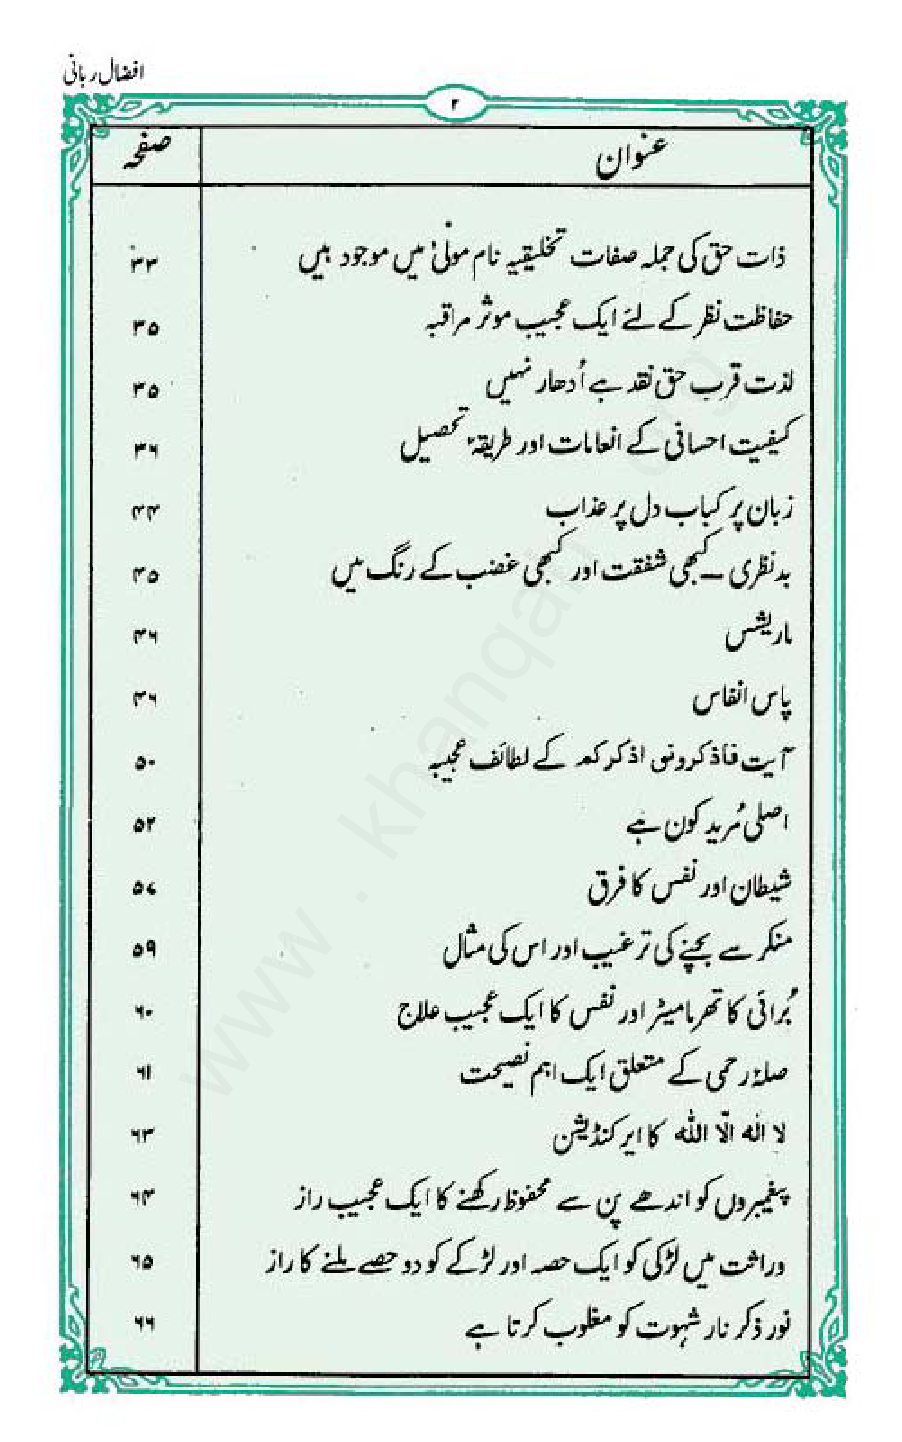 افضال ربانی
۲
عنوان صفحہ
ذات حق کی جملہ صفات تخلیقیہ نام مولیٰ میں موجود ہیں ۳۳
حفاظت نظر کے لئے ایک عجیب موثر مراقبہ ۳۵
لذت قرب حق نقد ہے اُدھار نہیں ۳۵
کیفیت احسانی کے انعامات اور طریقۂ تحصیل ۳۶
زبان پر کباب دل پر عذاب ۴۴
بدنظری ــ کبھی شفقت اور کبھی غضب کے رنگ میں ۴۵
ماریشس ۴۶
پاس انفاس ۴۶
آیت فاذکرونی اذکرکم کے لطائف عجیبہ ۵۰
اصلی مُرید کون ہے ۵۲
شیطان اور نفس کا فرق ۵۷
منکر سے بچنے کی ترغیب اور اس کی مثال ۵۹
بُرائی کا تھرمامیٹر اور نفس کا ایک عجیب علاج ۶۰
صلۂ رحمی کے متعلق ایک اہم نصیحت ۶۱
لا الٰہ الّا اللہ کا ایرکنڈیشن ۶۳
پیغمبروں کو اندھے پن سے محفوظ رکھنے کا ایک عجیب راز ۶۴
وراثت میں لڑکی کو ایک حصہ اور لڑکے کو دو حصے ملنے کا راز ۶۵
نور ذکر نار شہوت کو مغلوب کرتا ہے ۶۶
www.khanqah. .org